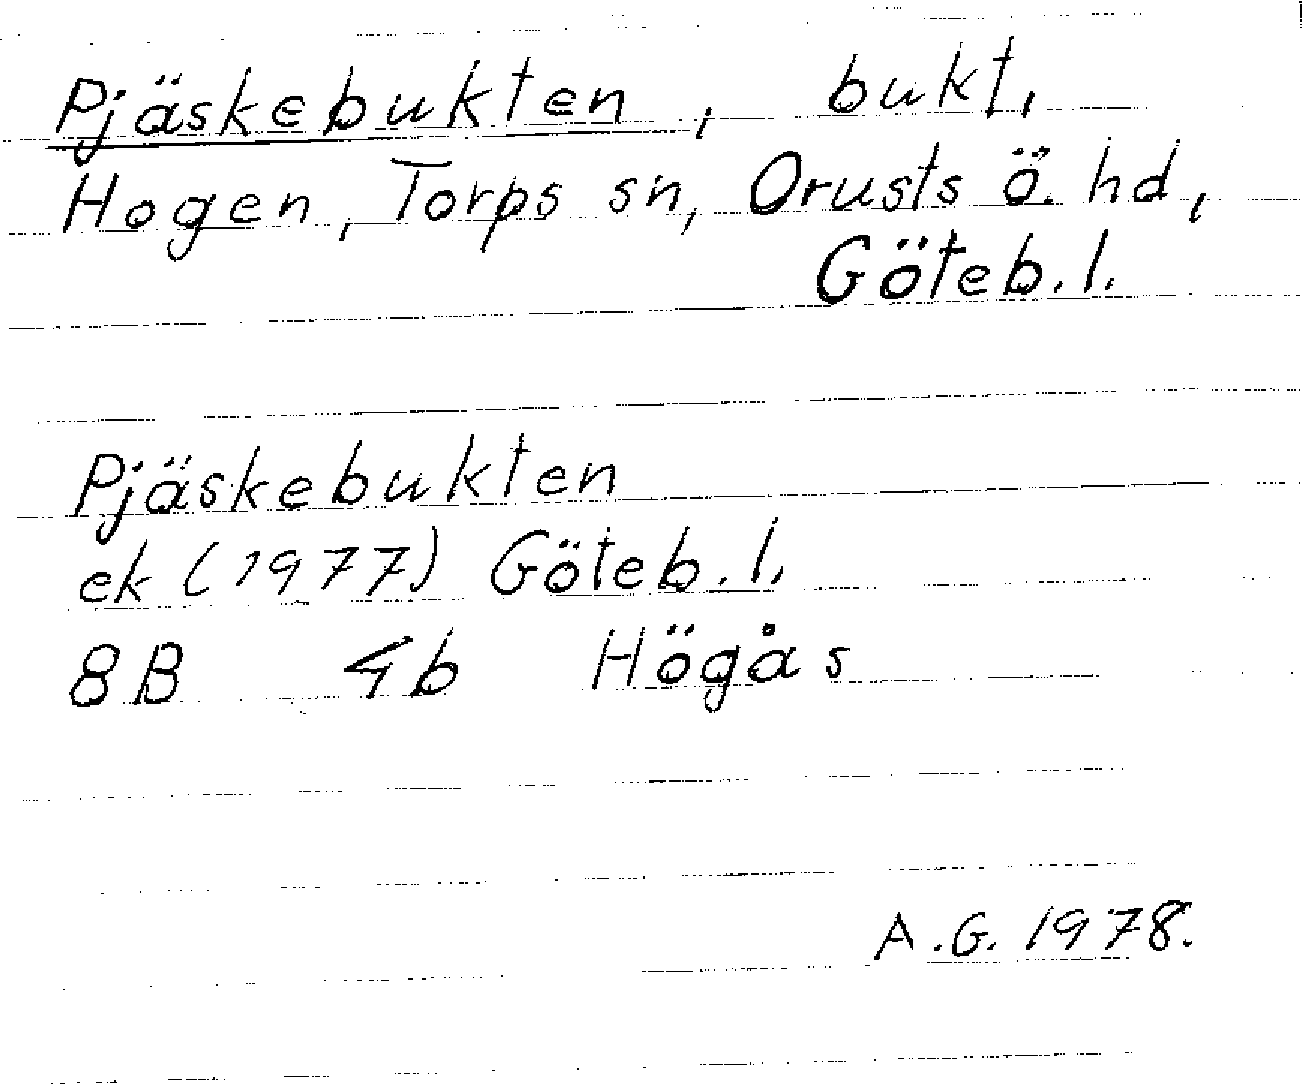 Pjäskebukten, bukt,
Hogen, Torps sn, Orusts ö. hd,
Göteb. l.
Pjäskebukten
ek (1977) Göteb. l.
8B 4b Högås
A.G. 1978.